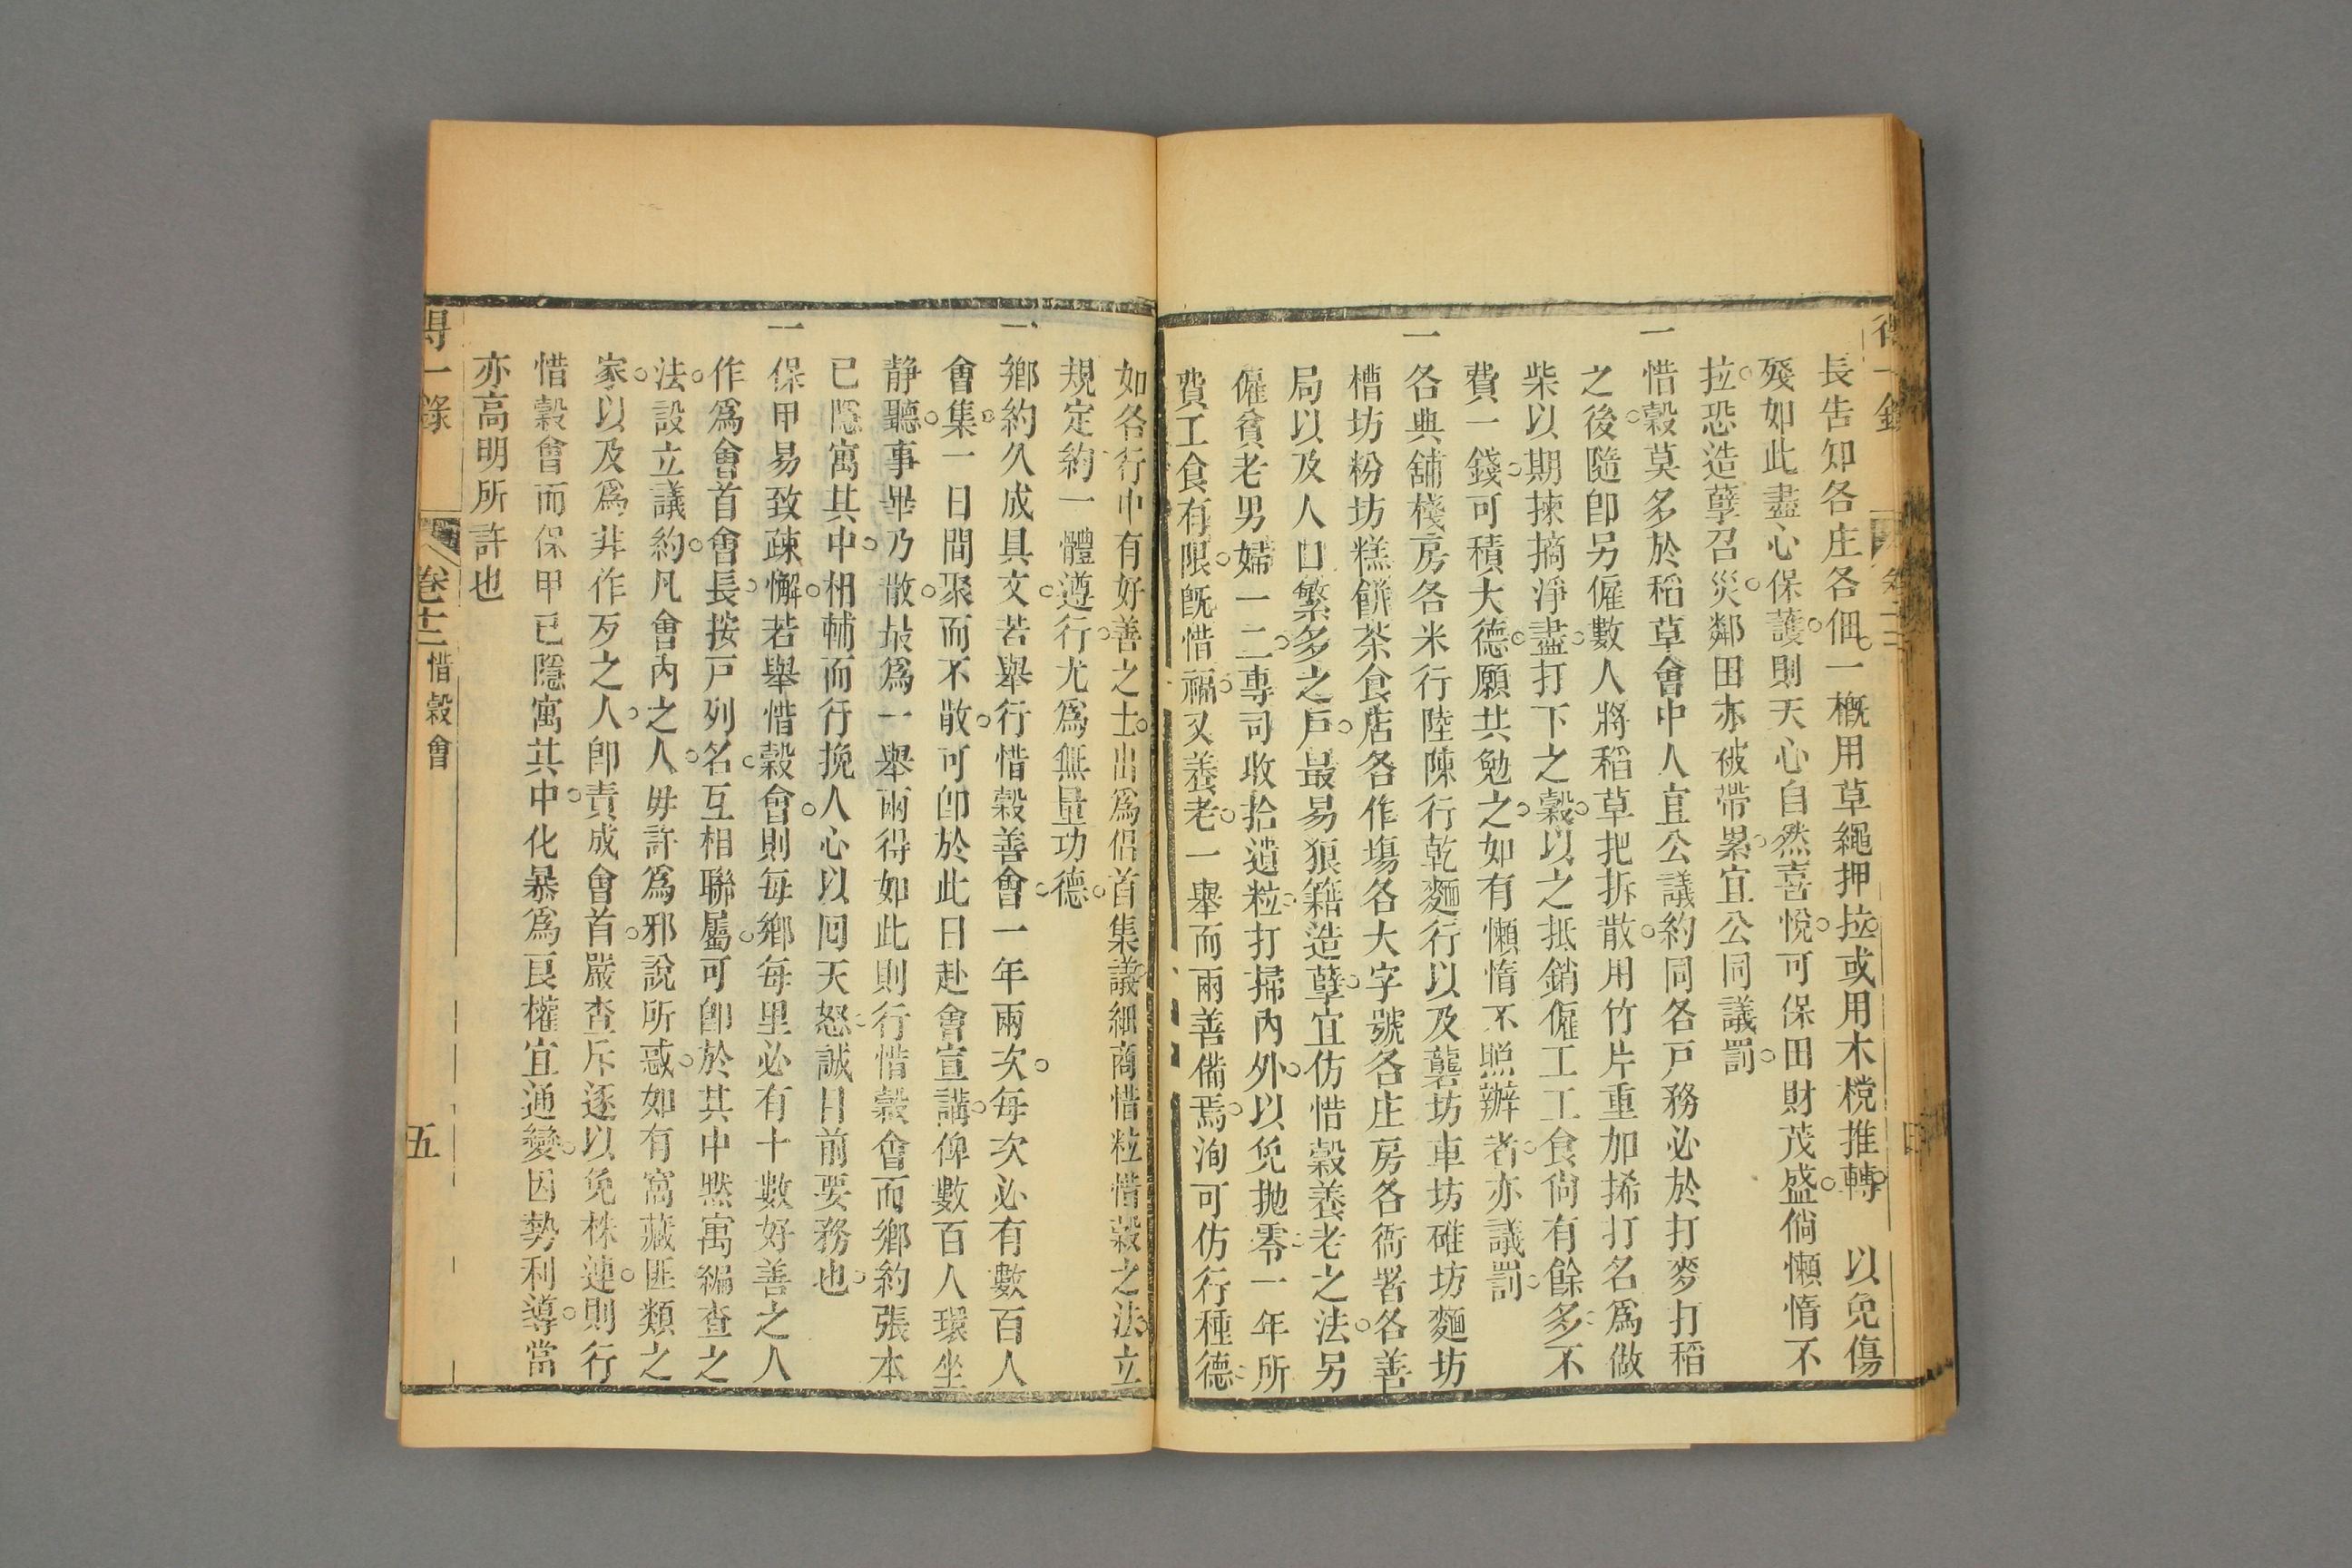 長告知各庄各佃一概用草繩押拉或用木橖推轉 以免傷
殘如此盡心保護則天心自然喜悅可保田財茂盛倘懶惰不
拉恐造孽召災鄰田亦被帶累宜公同議罰
一惜穀莫多於稻草會中人宜公議約同各戶務必於打麥打稻
之後隨卽另僱數人將稻草把拆散用竹片重加㧊打名爲做
柴以期揀摘淨盡打下之穀以之抵銷僱工工食尙有餘多不
費一錢可積大德願共勉之如有懶惰不照辦者亦議罰
一各典舖棧房各米行陸陳行乾麵行以及礱坊車坊碓坊麵坊
槽坊粉坊糕餅茶食店各作塲各大字號各庄房各衙署各善
局以及人口繁多之戶最易狼籍造孽宜仿惜穀養老之法另
僱貧老男婦一二專司收拾遺粒打掃內外以免拋零一年所
費工食有限旣惜福又養老一舉而兩善備焉洵可仿行種德
如各行中有好善之士出爲倡首集議細商惜粒惜穀之法立
規定約一體遵行尤爲無量功德
一鄉約久成具文若舉行惜穀善會一年兩次每次必有數百人
會集一日間聚而不散可卽於此日赴會宣講俾數百人環坐
靜聽事畢乃散最爲一舉兩得如此則行惜穀會而鄉約張本
已隱寓其中相輔而行挽人心以囘天怒誠目前要務也
一保甲易致疎懈若舉惜穀會則每鄉每里必有十數好善之人
作爲會首會長按戶列名互相聯屬可卽於其中黙寓編查之
法設立議約凡會內之人毋許爲邪說所惑如有窩藏匪類之
家以及爲非作歹之人卽責成會首嚴查斥逐以免株連則行
惜穀會而保甲已隱寓其中化暴爲良權宜通變因勢利導當
亦高明所許也
得一錄
卷十二
惜穀會
五